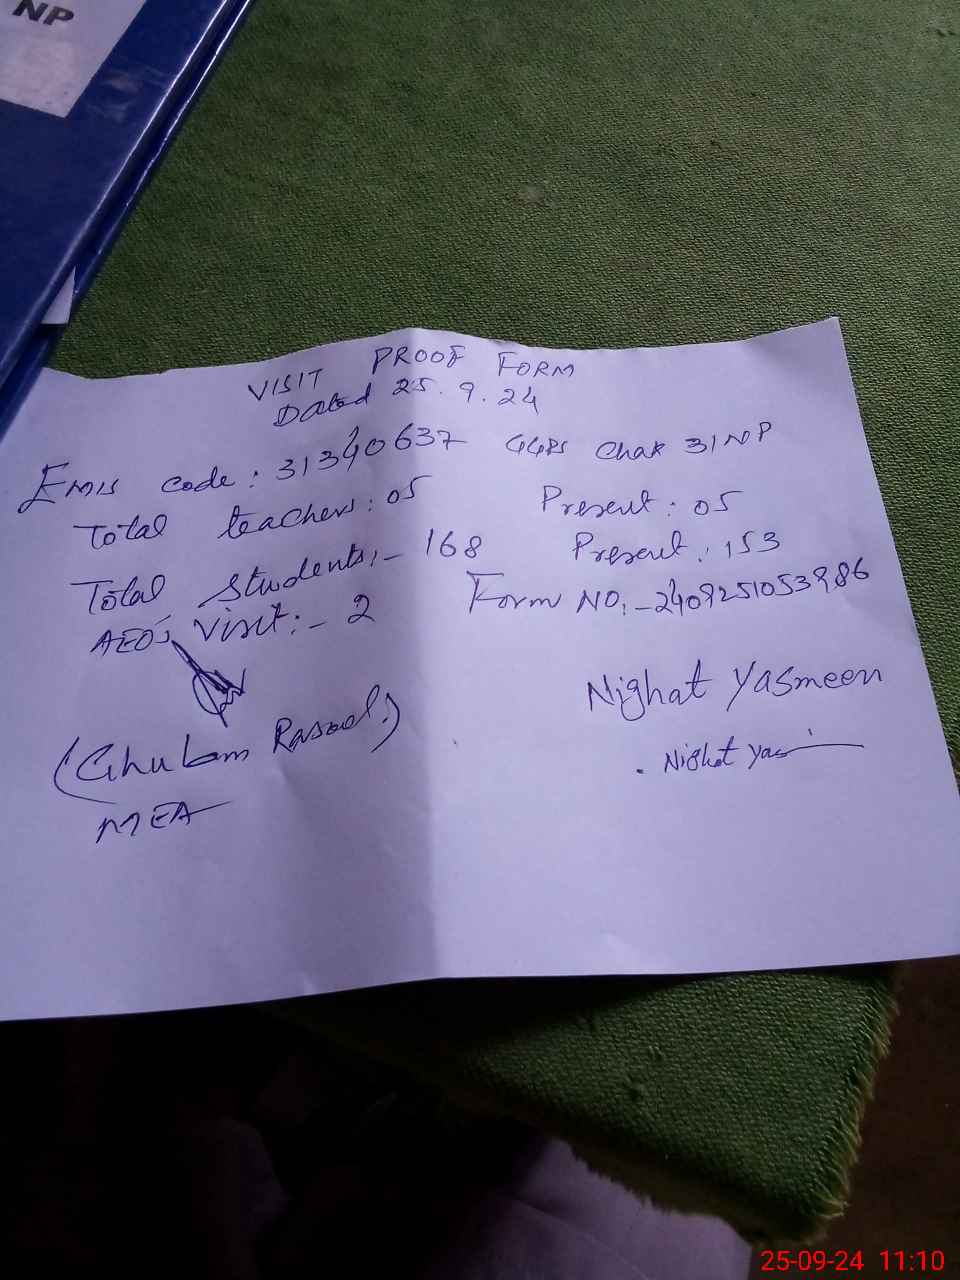 NP
VISIT PROOF FORM
Dated 25.9.24
EMIS code: 31340637 GGPS Chak 31 NP
Total teachers: 05 Present: 05
Total Students:- 168 Present: 153
AEO's Visit:- 2 Form NO:- 2409251053986
Nighat Yasmeen
(Ghulam Rasool)
Nighat Yas
MEA
25-09-24 11:10